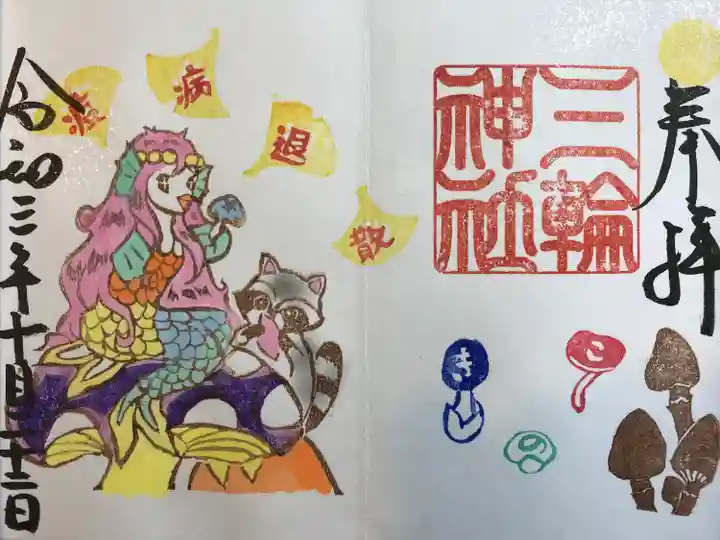 奉拝
三輪
神社
きのこ
疫病退散
令和三年十月